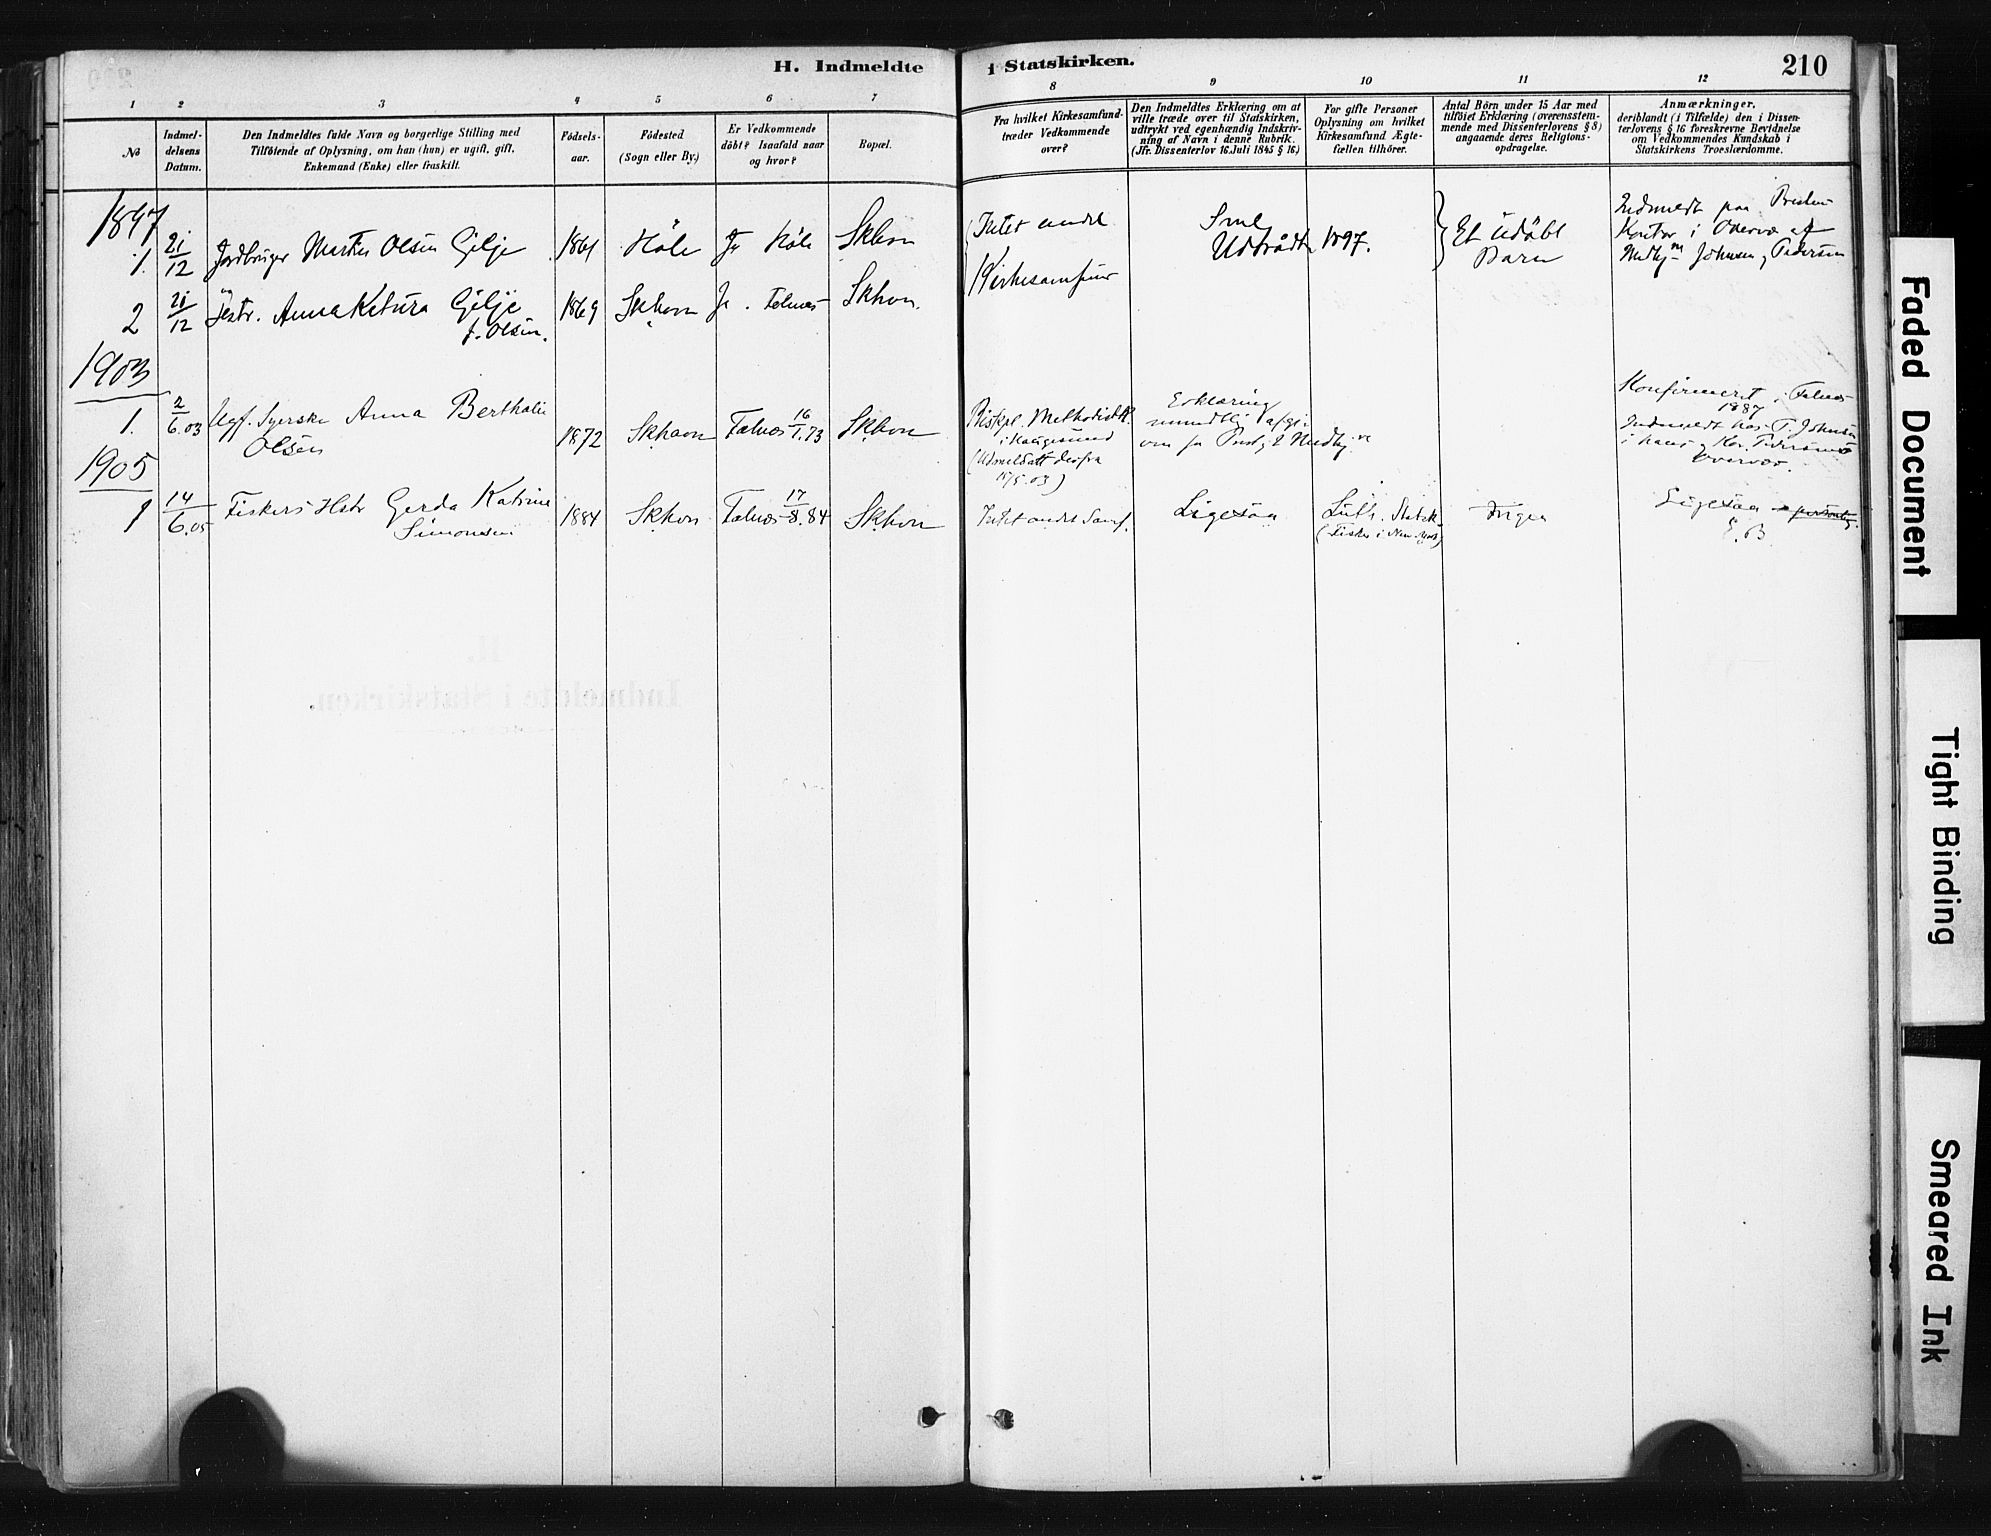 H. Indmeldte i Statskirken.
210
1 2 3 4 5 6 7 8 9 10 11 12
No
Indmel-
delsens
Datum.
Den Indmeldtes fulde Navn og borgerlige Stilling med
Tilföiende af Oplysning, om han (hun) er ugift, gift,
Enkemand (Enke) eller fraskilt.
Födsels-
aar.
Födested
(Sogn eller By.)
Er Vedkommende
döbt? Isaafald naar
og hvor?
Bopæl.
Fra hvilket Kirkesamfund
træder Vedkommende
over?
Den Indmeldtes Erklæring om at
ville træde over til Statskirken,
udtrykt ved egenhændig Indskriv-
ning af Navn i denne Rubrik.
(Jfr. Dissenterlov 16. Juli 1845 § 16.)
For gifte Personer
Oplysning om hvilket
Kirkesamfund Ægte-
fællen tilhörer.
Antal Börn under 15 Aar med
tilföiet Erklæring (overensstem-
mende med Dissenterlovens § 8)
angaaende deres Religions-
opdragelse.
Anmærkninger,
deriblandt (i Tilfælde) den i Dissen-
terlovens § 16 foreskrevne Bevidnelse
om Vedkommendes Kundskab i
Statskirkens Troeslærdomme.
1897
1. 21/12 Jordbruger Martin Olsen Gilje 1861 Höle Ja Höle Skhvn
Intet andet
Kirkesamfund
Udtrådt 1897.
Et Udöbt
Barn
Indmeldt paa
Kontor i Overvær af
Medhj. Johnsen og Pedersen
2 21/12 Anna Ketura Gilje
f. Olsen. 1869 Skhavn Ja. Falnes Skhvn.
1903
1. 2/6.03 Ugf. Syerske Anna Berthalie
Olsen 1872 Skhavn Falnes 16/1.73 Skhvn
Biskpl. Methodistk.
i Haugesund
(Udmeldatt derfra
15/5.03)
Erklæring
mundtlig afgi-
ven for Prest og 2 Medhj.
Konfirmeret i Falnes
1887
Indmeldt hos T. Johnsen
i hans og
Overvær.
1905
1 14/6.05 Fiskers Hstr Gerda Katrine
Simonsen 1884 Skhvn. Falnes 17/8.84 Skhvn
Intet andet Samf. Ligesaa Luth. Statsk.
(Fisker i New York)
Ingen
Ligesaa
E. B.
H.
Indmeldte i Statskirken.
Faded Document
Tight Binding
Smeared Ink